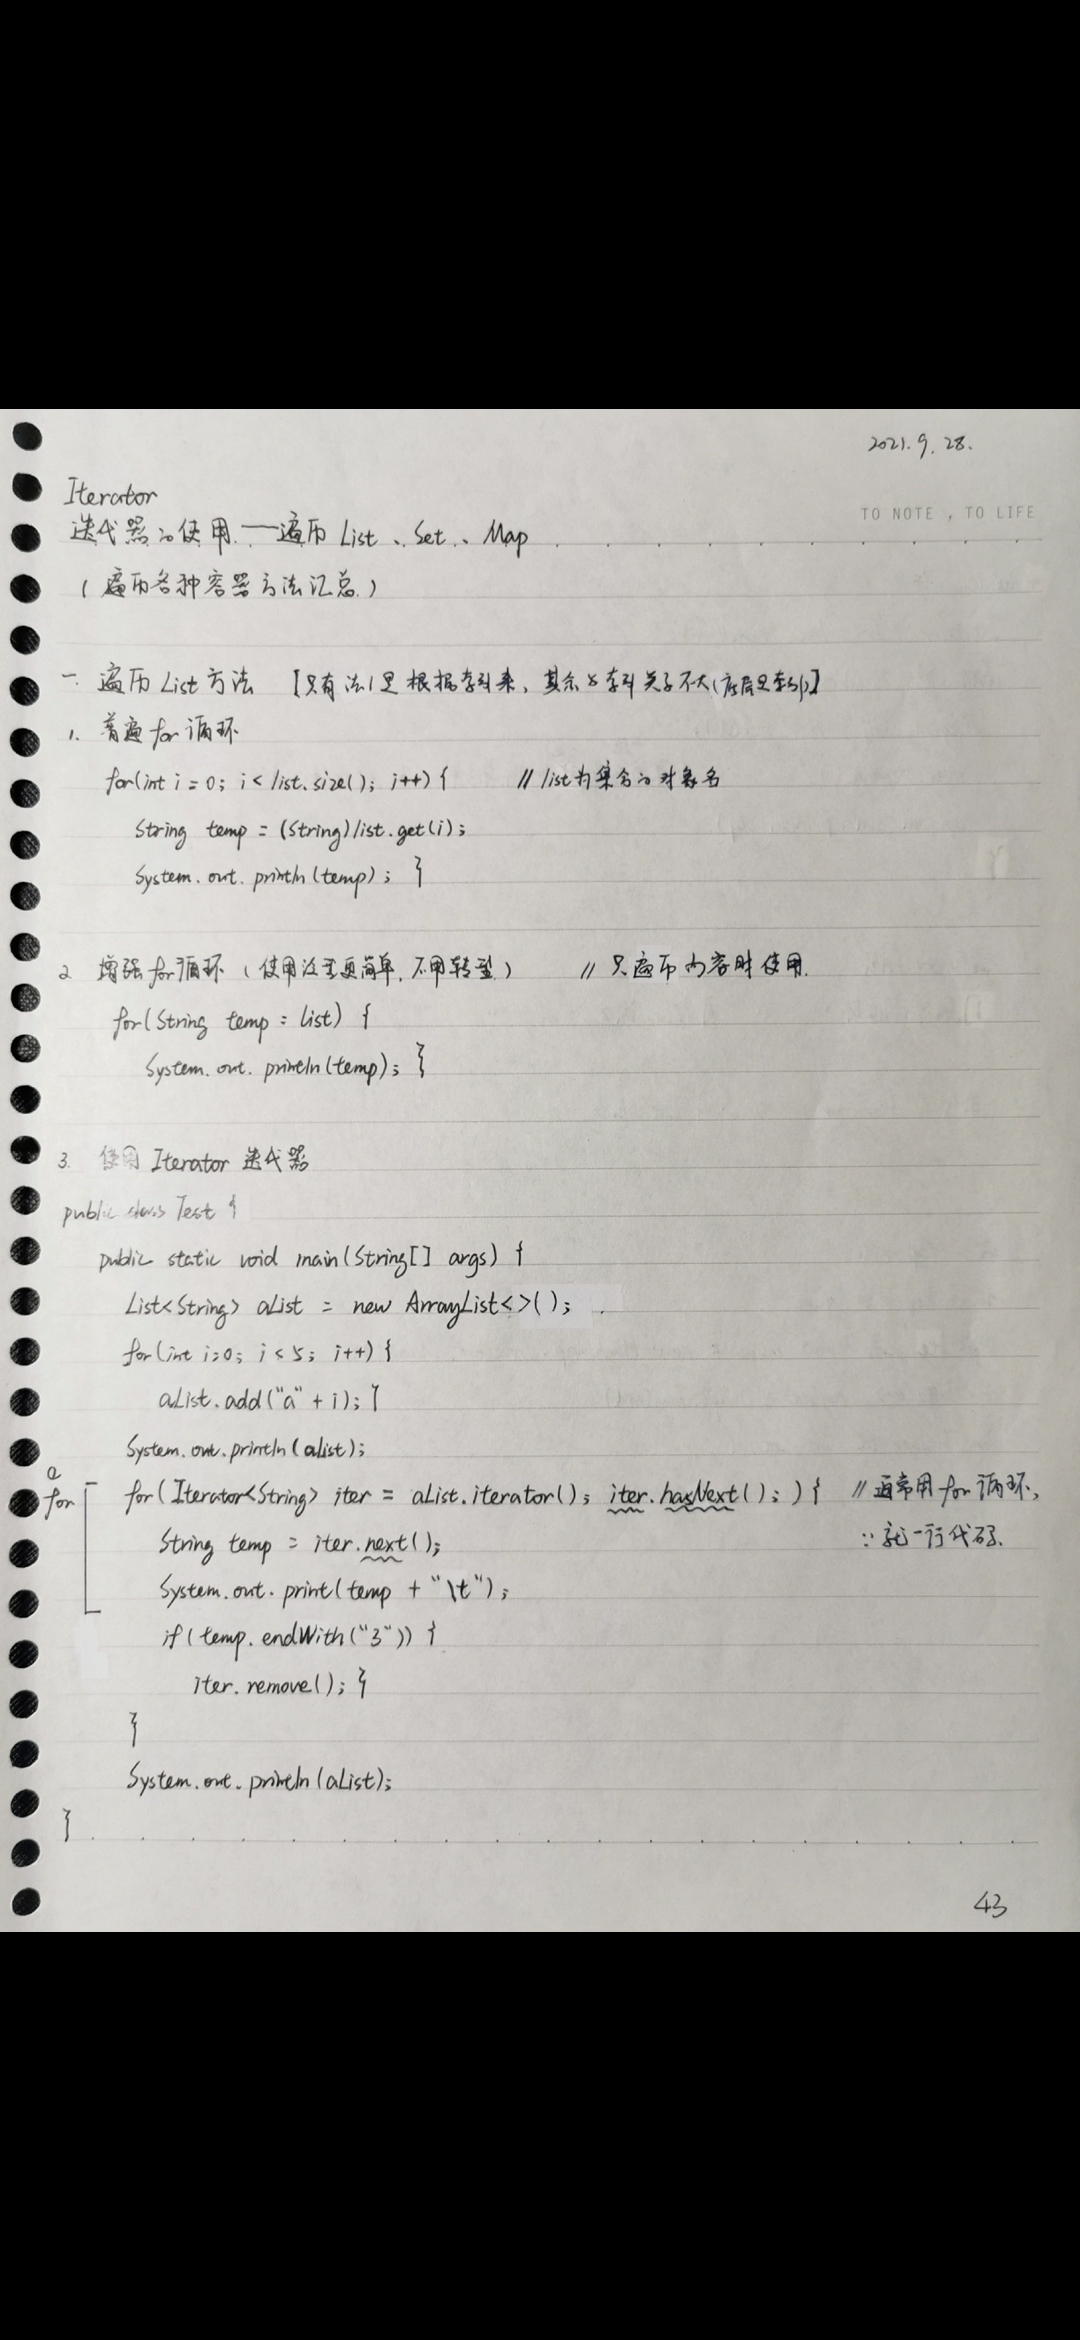 2021.9.28.
TO NOTE , TO LIFE
Iterator
迭代器的使用——遍历 List、Set、Map
(遍历各种容器方法汇总)
一. 遍历 List 方法 【只有法1是根据索引来, 其余与索引关系不大(底层是索引)】
1. 普通 for 循环
for(int i = 0; i < list.size(); i++) { // list为集合的对象名
String temp = (String)list.get(i);
System.out.println(temp); }
2 增强 for 循环 (使用泛型更简单, 不用转型) // 只遍历内容时使用.
for(String temp : list) {
System.out.println(temp); }
3. 使用 Iterator 迭代器
public class Test {
public static void main(String[] args) {
List<String> aList = new ArrayList<>();
for(int i=0; i < 5; i++) {
aList.add("a" + i); }
System.out.println(aList);
a
for
for( Iterator<String> iter = aList.iterator(); iter.hasNext(); ) { // 通常用 for 循环,
String temp = iter.next(); ∵就一行代码.
System.out.print(temp + "\t");
if(temp.endWith("3")) {
iter.remove(); }
}
System.out.println(aList);
}
43